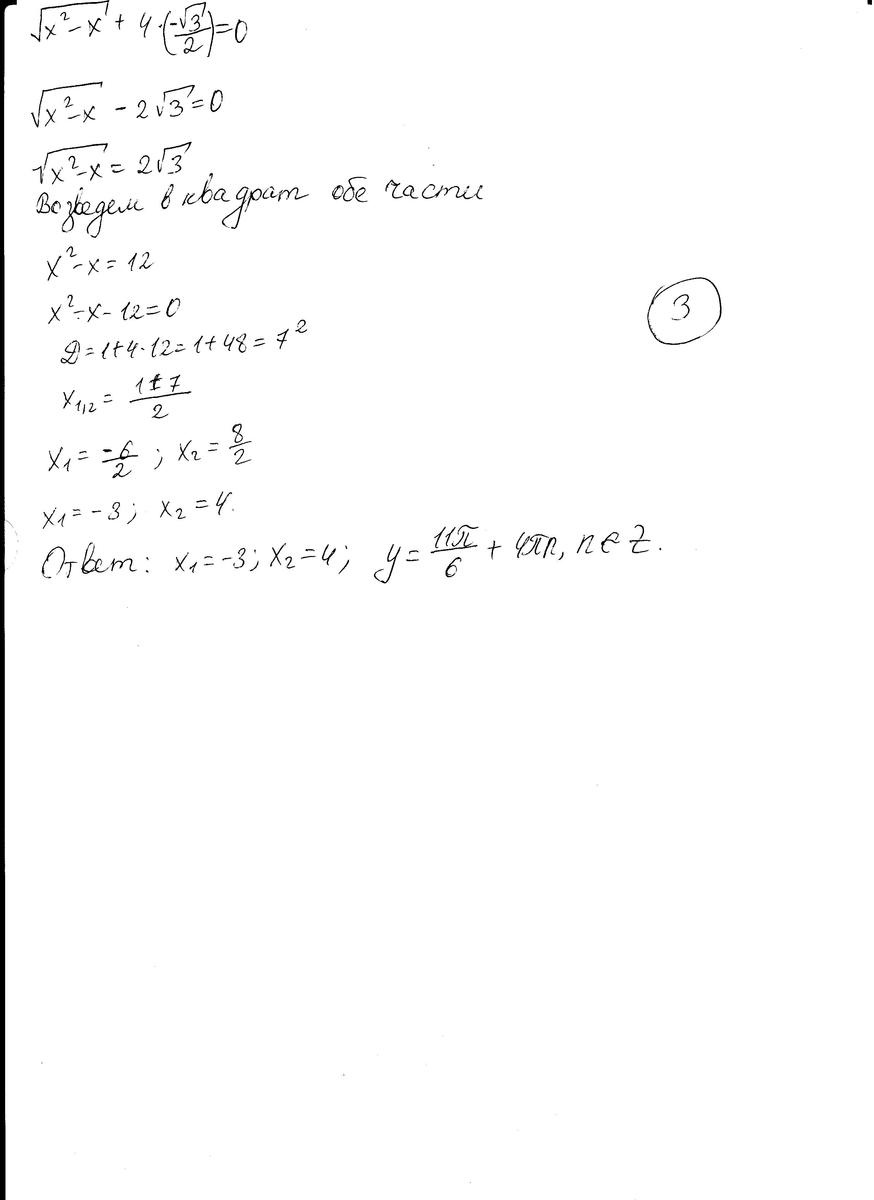 √(x²-x) + 4·(-√3/2)=0
√(x²-x) - 2√3=0
√(x²-x) = 2√3
Возведем в квадрат обе части
x²-x=12
x²-x-12=0
D=1+4·12=1+48=7²
x₁,₂ = (1±7)/2
x₁ = -6/2 ; x₂ = 8/2
x₁=-3; x₂=4.
Ответ: x₁=-3; x₂=4; y = 11π/6 + 4πn, n∈Z.
3